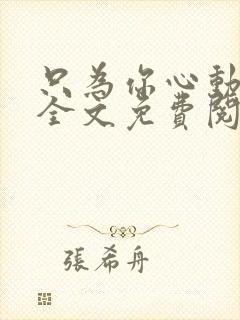 只為你心動
全文免費閱
張希舟